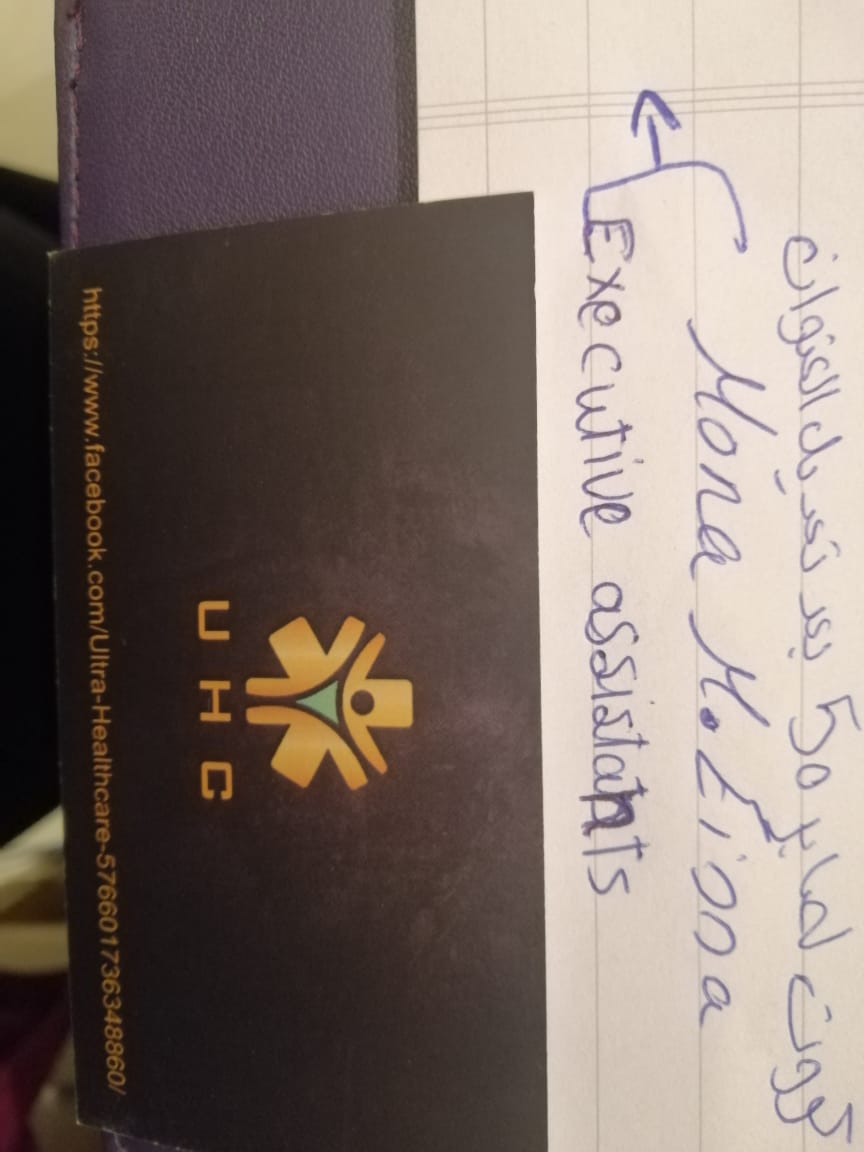 كروت لصابر 50 بعد تعديل العنوان
Mona M. Einna
Executive assistants
UHC
https://www.facebook.com/Ultra-Healthcare-576601736348860/